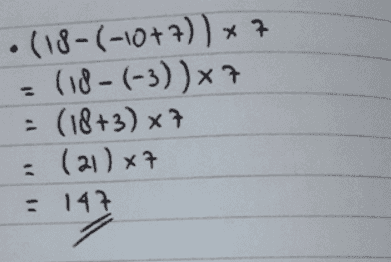 • (18-(-10+7)) × 7
= (18-(-3)) × 7
= (18+3) × 7
= (21) × 7
= 147